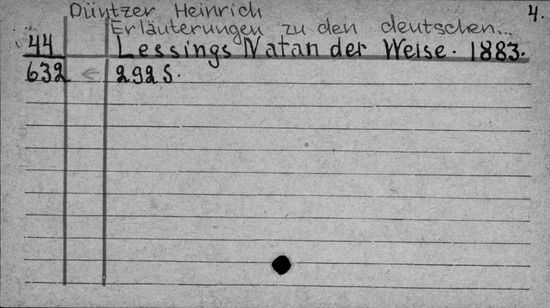 Düntzer Heinrich 4.
Erläuterungen zu den deutschen...
44 Lessings Natan der Weise. 1883.
632 292 S.